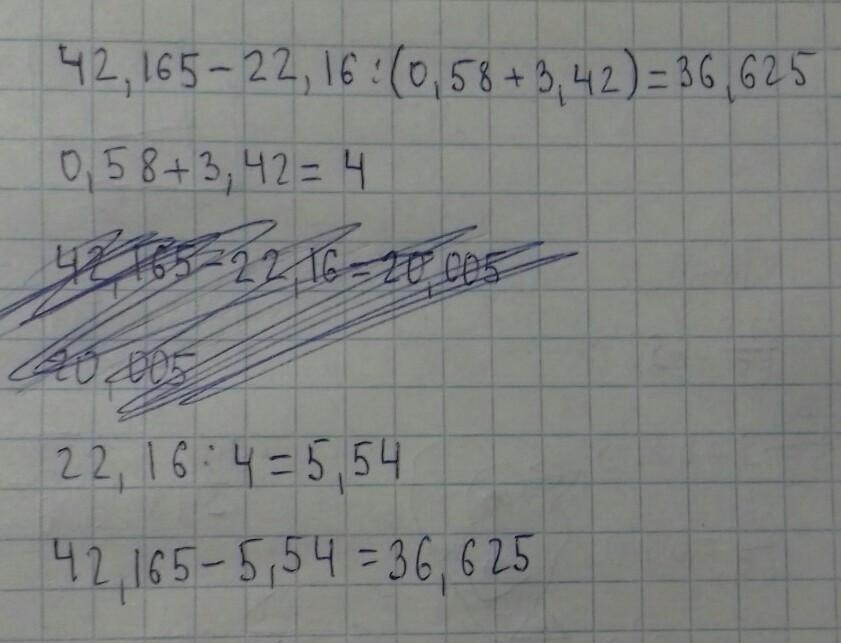 42,165-22,16:(0,58+3,42)=36,625
0,58+3,42=4
42,165-22,16=20,005
20,005
22,16:4=5,54
42,165-5,54=36,625